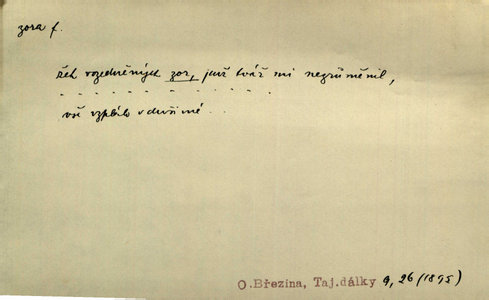 zora f.
žeh rozedněných zor, jenž tvář mi nezrůměnil,
. . . . . . . . . . . .
vše vzplálo v duši mé . . .
O.Březina, Taj.dálky 9, 26 (1895)